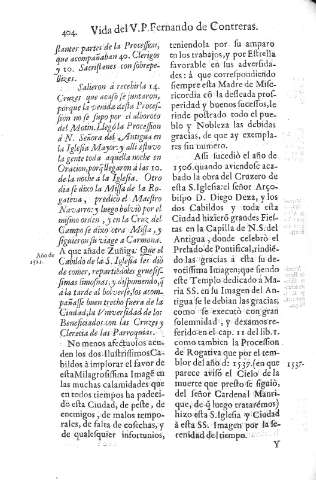 404. Vida del V. P. Fernando de Contreras.
stantes partes de la Procession,
que acompañaban 40. Clerigos
y 10. Sacristanes con sobrepe-
llizes.
Salieron à recibirla 14.
Cruzes que acaso se juntaron,
porque la venida desta Proces-
sion no se supo por el alboroto
del Motin. Llegò la Procession
à N. Señora del Antigua en
la Iglesia Mayor: y alli estuvo
la gente toda aquella noche en
Oracion, porq̃ llegaron à las 10.
de la noche à la Iglesia. Otro
dia se dixo la Missa de la Ro-
gativa, predicò el Maestro
Navarro: y luego bolviò por el
mismo orden, y en la Cruz del
Campo se dixo otra Missa, y
siguieron su viage a Carmona.
Año de
1521.
A que añade Zuñiga: Que el
Cabildo de la S. Iglesia les diò
de comer, repartidoles gruesis-
simas limosnas; y disponiendo, q̃
à la tarde al bolverse, los acom-
pañasse buen trecho fuera de la
Ciudad, la Vniversidad de los
Beneficiados con las Cruzes y
Clerecia de las Parroquias.
No menos afectuosos acu-
den los dos Ilustrissimos Ca-
bildos à implorar el favor de
esta Milagrosissima Imagẽ en
las muchas calamidades que
en todos tiempos ha padeci-
do esta Ciudad, de peste, de
enemigos, de malos tempo-
rales, de falta de cosechas, y
de qualesquier infortunios,
teniendola por su amparo
en los trabajos, y por Estrella
favorable en sus adversida-
des: à que correspondiendo
siempre esta Madre de Mise-
ricordia cõ la desseada pros-
peridad y buenos sucessos, le
rinde postrado todo el pue-
blo y Nobleza las debidas
gracias, de que ay exempla-
res sin numero.
Assi sucediò el año de
1506. quando aviendose aca-
bado la obra del Cruzero de
esta S. Iglesia: el señor Arço-
bispo D. Diego Deza, y los
dos Cabildos y toda esta
Ciudad hizierõ grandes Fies-
tas en la Capilla de N. S. del
Antigua, donde celebrò el
Prelado de Pontifical, rindiẽ-
do las gracias à esta su de-
votissima Imagen; que siendo
este Templo dedicado à Ma-
ria SS. en su Imagen del An-
tigua se le debian las gracias;
como se executò con gran
solemnidad, y dexamos re-
ferido en el cap. 11. del lib. 1.
como tambien la Procession
de Rogativa que por el tem-
blor del año d: 1537. (en que
1537.
parece avisò el Cielo de la
muerte que presto se siguiò,
del señor Cardenal Manri-
que, de q̃ luego trataremos)
hizo esta S. Iglesia y Ciudad
à esta SS. Imagen por la se-
renidad del tiempo.
Y